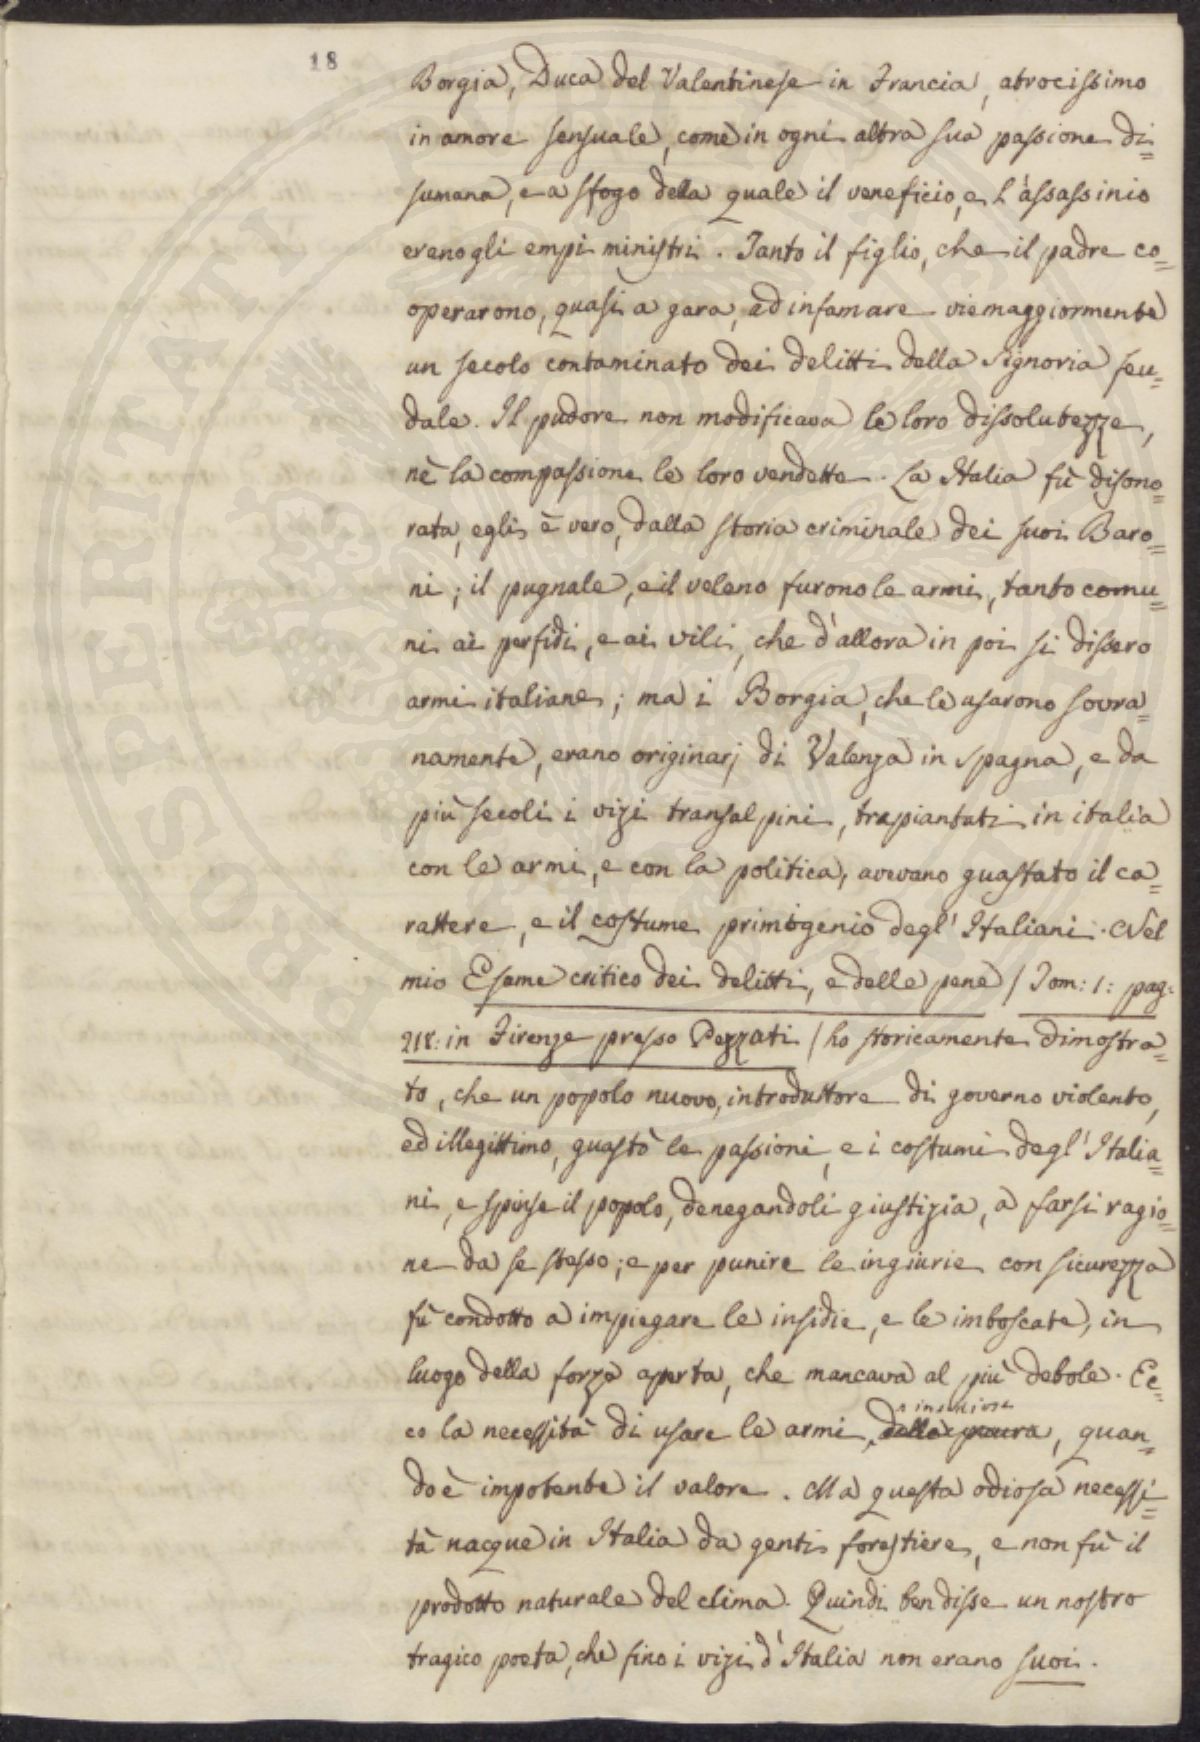 18
Borgia, Duca del Valentinese in Francia, atrocissimo
in amore sensuale, come in ogni altra sua passione di=
sumana, e a sfogo della quale il veneficio, e l'assassinio
erano gli empi ministri. Tanto il figlio, che il padre co=
operarono, quasi a gara, ad infamare viemaggiormente
un secolo contaminato dei delitti della Signoria feu=
dale. Il pudore non modificava le loro dissolutezze,
nè la compassione le loro vendette. La Italia fù disono=
rata, egli è vero, dalla storia criminale dei suoi Baro=
ni; il pugnale, e il veleno furono le armi, tanto comu=
ni ai perfidi, e ai vili, che d'allora in poi si dissero
armi italiane; ma i Borgia, che le usarono sovra=
namente, erano originarj di Valenza in Spagna, e da
più secoli i vizi transalpini, trapiantati in italia
con le armi, e con la politica, avevano guastato il ca=
rattere, e il costume primigenio degl' Italiani. Nel
mio Esame critico dei delitti, e delle pene / Tom: 1: pag:
218: in Firenze presso Pezzati / ho storicamente dimostra=
to, che un popolo nuovo, introduttore di governo violento,
ed illegittimo, guastò le passioni, e i costumi degl' Italia=
ni, e spinse il popolo, denegandoli giustizia, a farsi ragio=
ne da se stesso; e per punire le ingiurie con sicurezza
fù condotto a impiegare le insidie, e le imboscate, in
luogo della forza aperta, che mancava al più debole. Ec=
insidiose
co la necessità di usare le armi, della paura, quan=
do è impotente il valore. Ma questa odiosa necessi=
tà nacque in Italia da genti forestiere, e non fù il
prodotto naturale del clima. Quindi ben disse un nostro
tragico poeta, che fino i vizi d'Italia non erano suoi.
PROSPERITATI